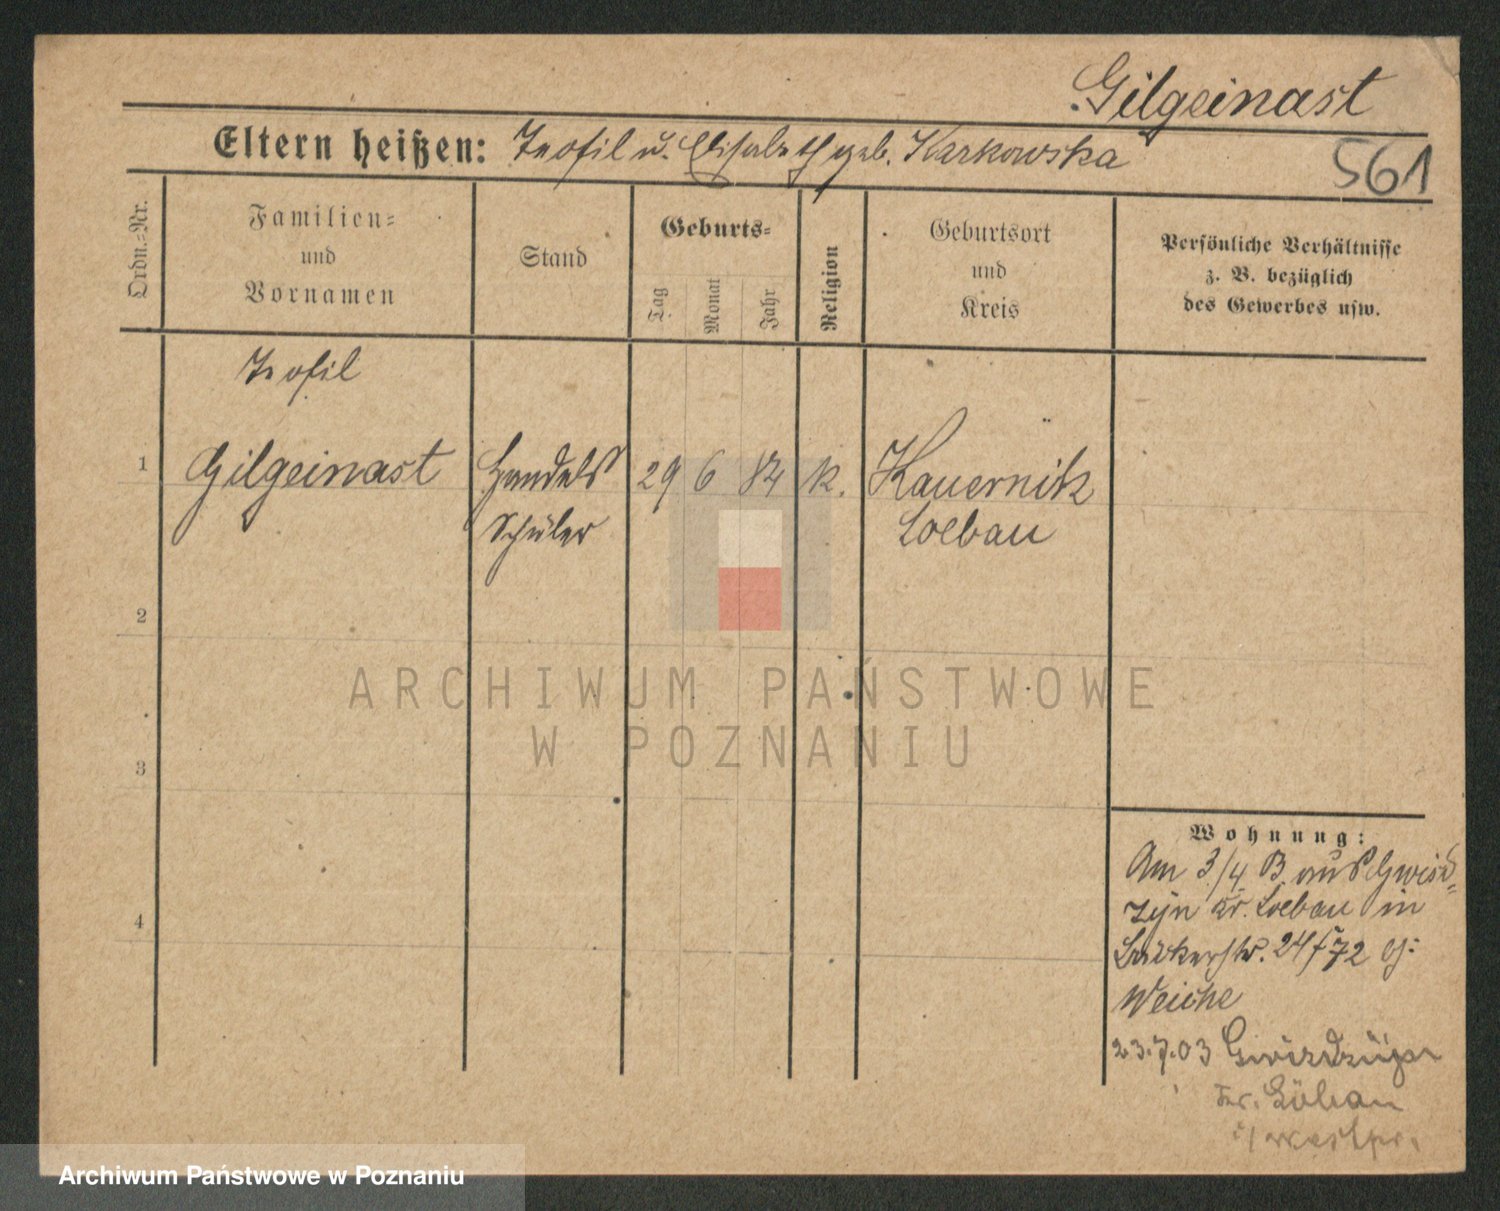 Gilgeinast
Eltern heißen: Teofil u. Elisabeth geb. Karkowska
561
Ordn.-Nr.
Familien-
und
Vornamen
Stand
Geburts-
Tag
Monat
Jahr
Religion
Geburtsort
und
Kreis
Persönliche Verhältnisse
z. B. bezüglich
des Gewerbes usw.
Teofil
1 Gilgeinast Handels 29 6 84 k. Kauernik
Schüler Loebau
2
ARCHIWUM PAŃSTWOWE
W POZNANIU
3
Wohnung:
Am 3/4 B aus Gwisd-
zyn Kr. Loebau in
4
Bäckerstr. 24 72
Weiche
23.7.03
Kr. Löbau
i/ Westpr.
Archiwum Państwowe w Poznaniu